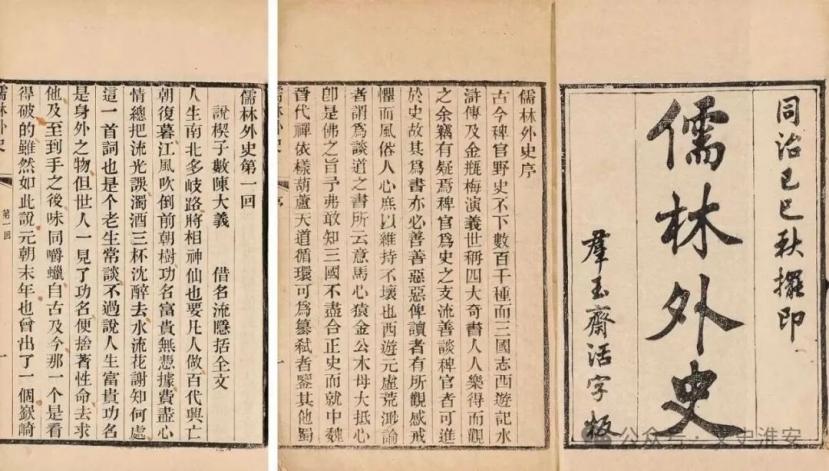 同治己巳秋擺印
儒林外史
羣玉齋活字板
儒林外史序
古今稗官野史不下數百千種而三國志西遊記水
滸傳及金瓶梅演義世稱四大奇書人人樂得而觀
之余竊有疑焉稗官爲史之支流善談稗官者可進
於史故其爲書亦必善善惡惡俾讀者有所觀感戒
懼而風俗人心庶以維持不壞也西遊元虛荒渺論
者謂爲談道之書所云意馬心猿金公木母大抵心
卽是佛之旨予弗敢知三國不盡合正史而就中魏
晉代禪依樣葫蘆天道循環可爲篡弒者鑒其他蜀
儒林外史 序 一
儒林外史第一回
說楔子敷陳大義 借名流隱括全文
人生南北多岐路將相神仙也要凡人做百代興亡
朝復暮江風吹倒前朝樹功名富貴無憑據費盡心
情總把流光誤濁酒三杯沈醉去水流花謝知何處
這一首詞也是個老生常談不過說人生富貴功名
是身外之物但世人一見了功名便捨著性命去求
他及至到手之後味同嚼蠟自古及今那一個是看
得破的雖然如此說元朝末年也曾出了一個嶔崎
儒林外史 第一回 一
公众号·文史淮安